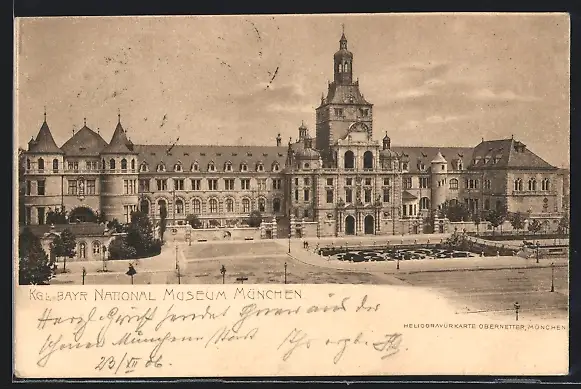 KGL. BAYR NATIONAL MUSEUM MÜNCHEN
HELIOGRAVÜRKARTE OBERNETTER, MÜNCHEN
Herzl. Gruß sendet Ihnen aus der
schönen Münchener Stadt Ihr
23/VII 06.